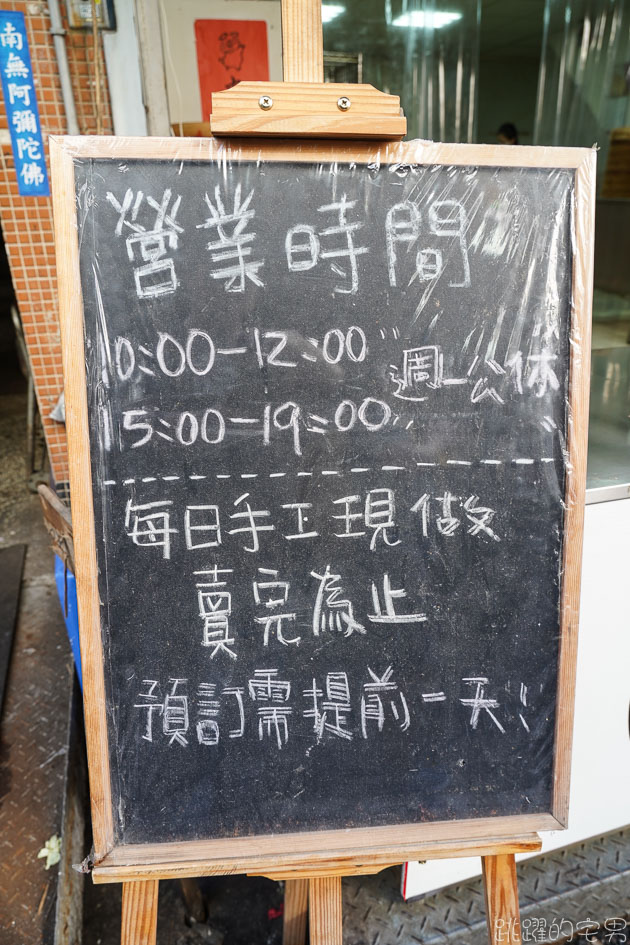 南無阿彌陀佛
營業時間
10:00-12:00
週一公休
15:00-19:00
每日手工現做
賣完為止
預訂需提前一天!
跳躍的宅男